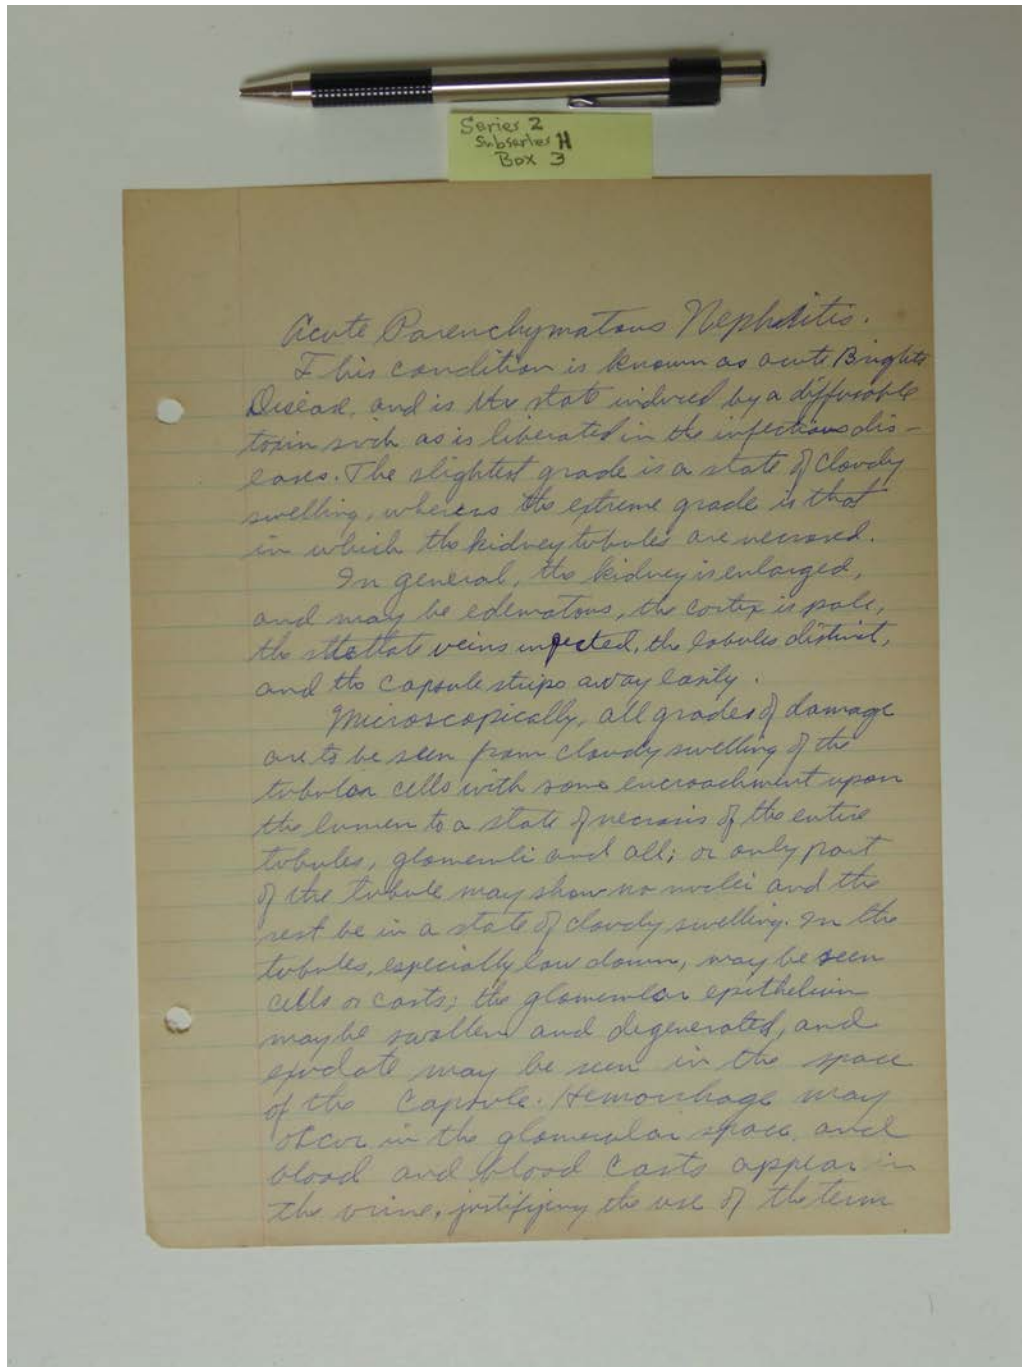 Series 2
Subseries H
Box 3
Acute Parenchymatous Nephritis.
This condition is known as acute Brights
Disease, and is the state induced by a diffusable
toxin such as is liberated in the infectious dis-
eases. The slightest grade is a state of cloudy
swelling, whereas the extreme grade is that
in which the kidney tubules are necrosed.
In general, the kidney is enlarged,
and may be edematous, the cortex is pale,
the stellate veins injected, the lobules distinct,
and the capsule strips away easily.
Microscopically, all grades of damage
are to be seen from cloudy swelling of the
tubular cells with some encroachment upon
the lumen to a state of necrosis of the entire
tubules, glomeruli and all; or only part
of the tubule may show no nuclei and the
rest be in a state of cloudy swelling. In the
tubules, especially low down, may be seen
cells or casts; the glomerular epithelium
may be swollen and degenerated, and
exudate may be seen in the space
of the capsule. Hemorrhage may
occur in the glomerular space, and
blood and blood casts appear in
the urine, justifying the use of the term